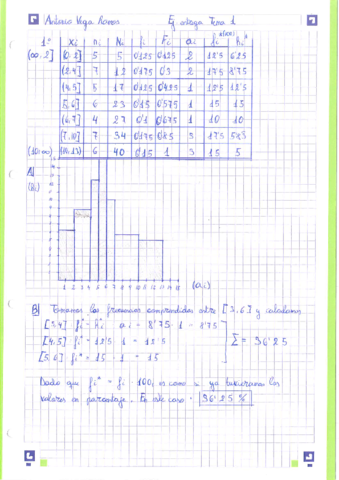 Antonio Vega Ramos Ej entrega Tema 1
1º xi ni Ni fi Fi ai fi*(%) hi*
(∞, 2] [0, 2] 5 5 0'125 0'125 2 12'5 6'25
(2,4] 7 12 0'175 0'3 2 17'5 8'75
(4,5] 5 17 0'125 0'425 1 12'5 12'5
(5,6] 6 23 0'15 0'575 1 15 15
(6,7] 4 27 0'1 0'675 1 10 10
(7,10] 7 34 0'175 0'85 3 17'5 5'83
(10,∞) (10,13] 6 40 0'15 1 3 15 5
A)
(hi)
1 2 3 4 5 6 7 8 9 10 11 12 13 14 15 (ai)
B) Tomamos las frecuencias comprendidas entre [3,6] y calculamos
[3,4] fi* = hi · ai = 8'75 · 1 = 8'75
[4,5] fi* = 12'5 · 1 = 12'5
[5,6] fi* = 15 · 1 = 15
Σ = 36'25
Dado que fi* = fi · 100, es como si ya tuvieramos los
valores en porcentaje. En este caso = 36'25 %